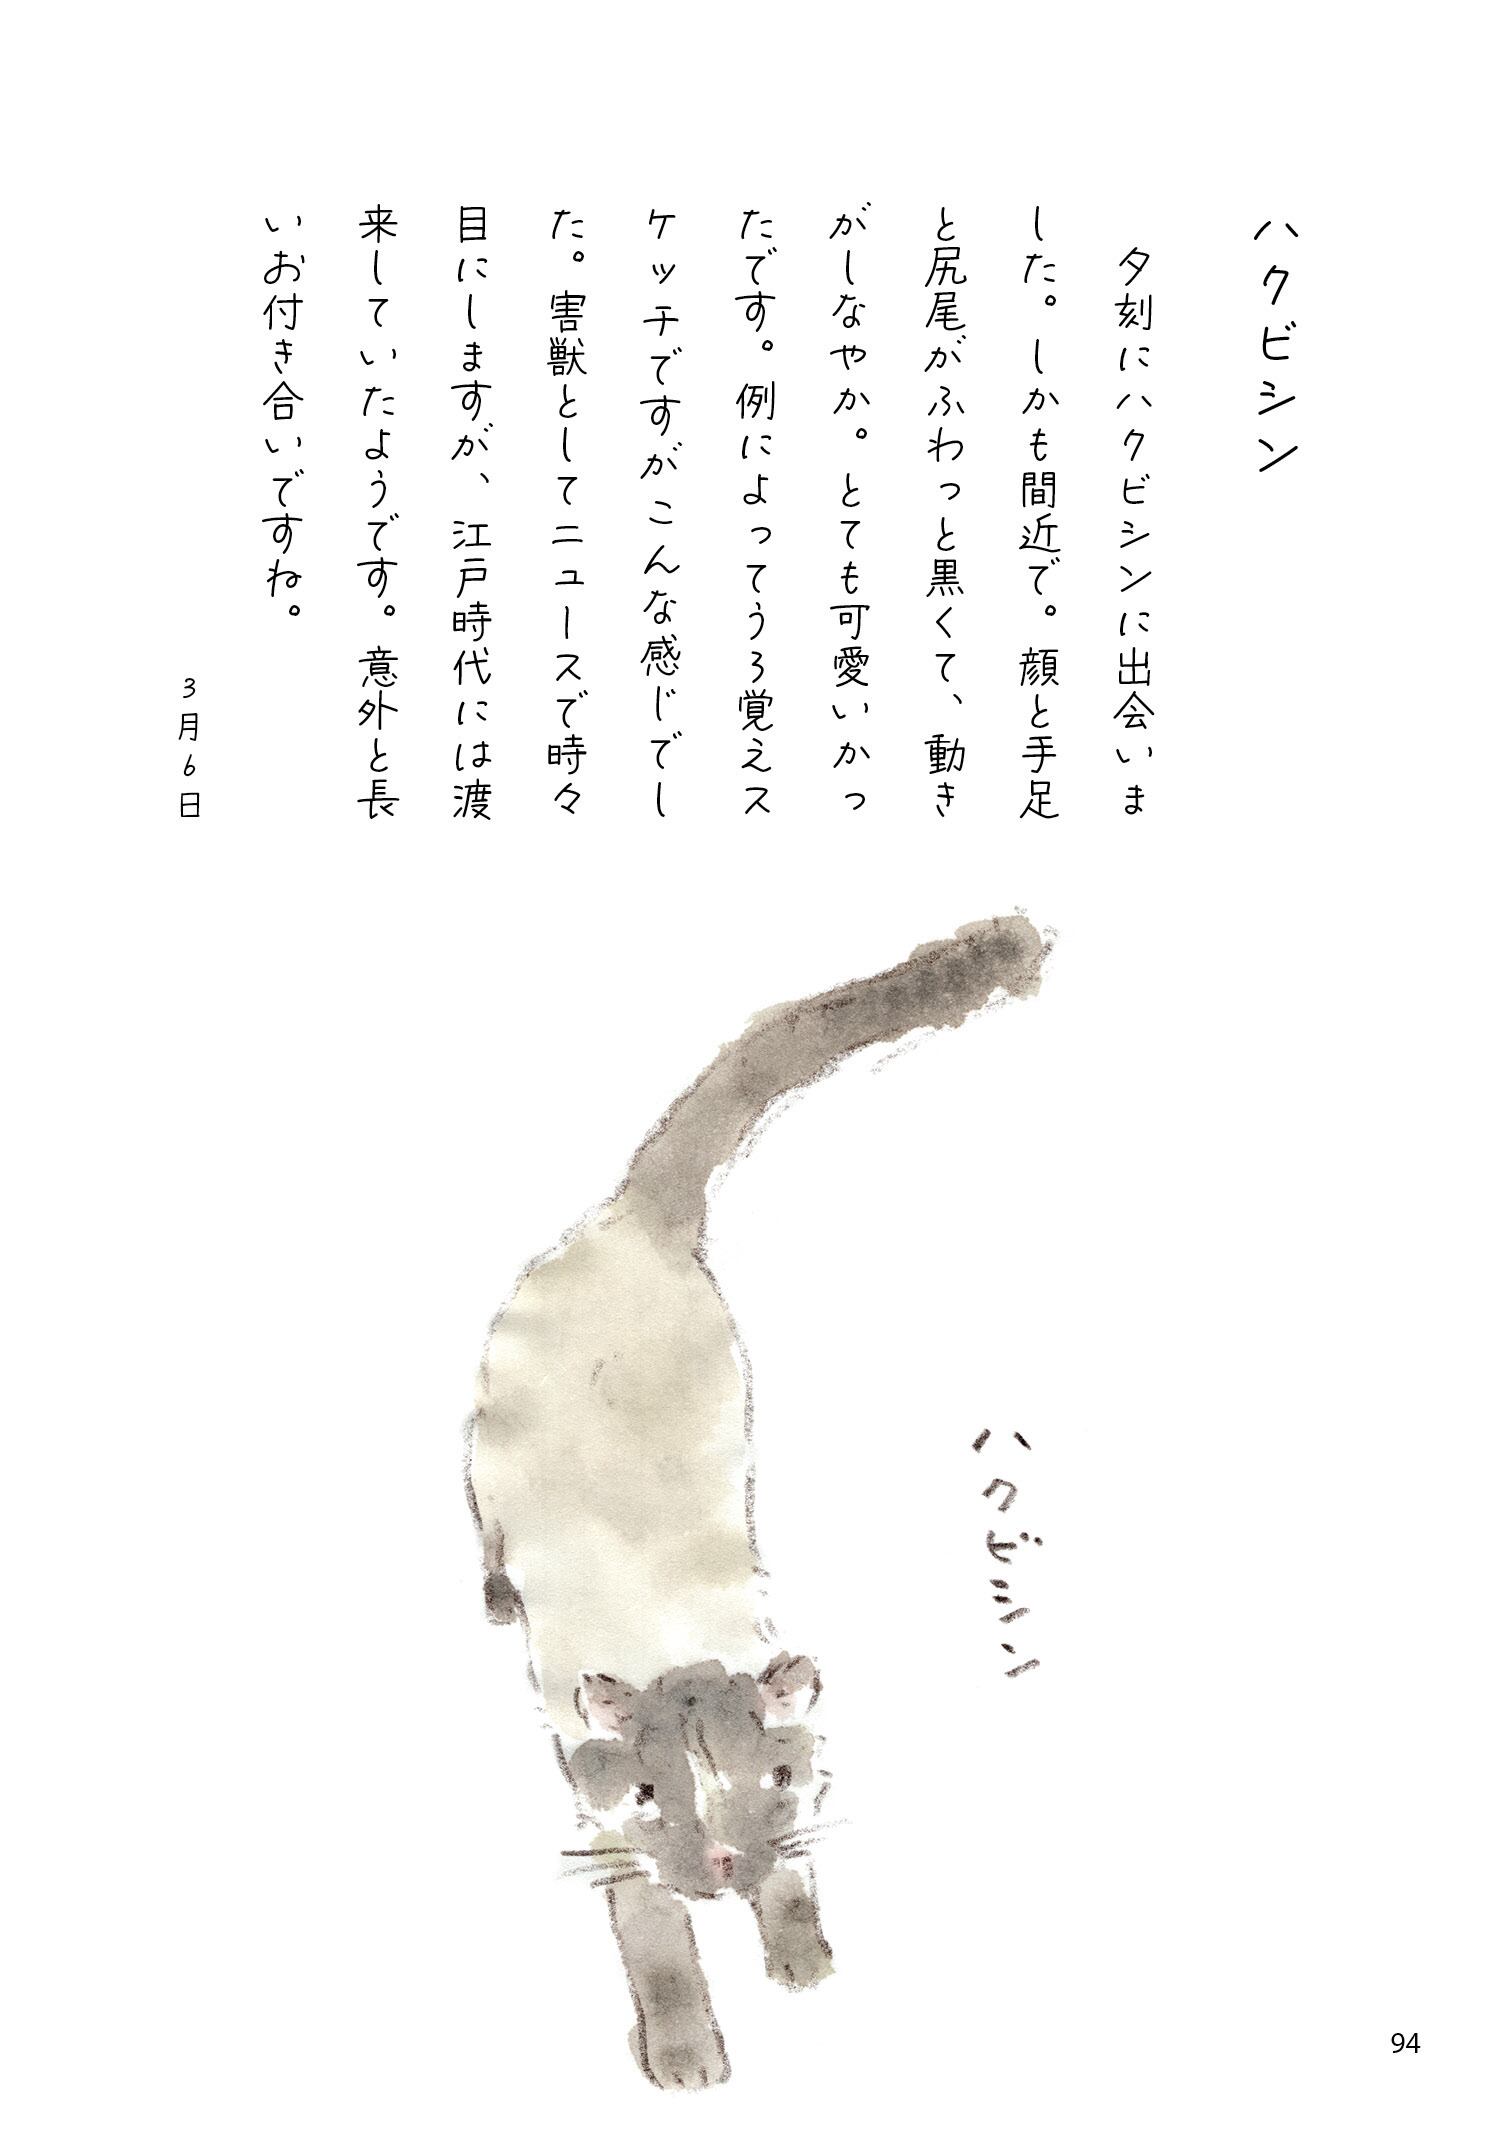 ハクビシン
夕刻にハクビシンに出会いま
した。しかも間近で。顔と手足
と尻尾がふわっと黒くて、動き
がしなやか。とても可愛いかっ
たです。例によってうろ覚えス
ケッチですがこんな感じでし
た。害獣としてニュースで時々
目にしますが、江戸時代には渡
来していたようです。意外と長
いお付き合いですね。
3月6日
ハクビシン
94